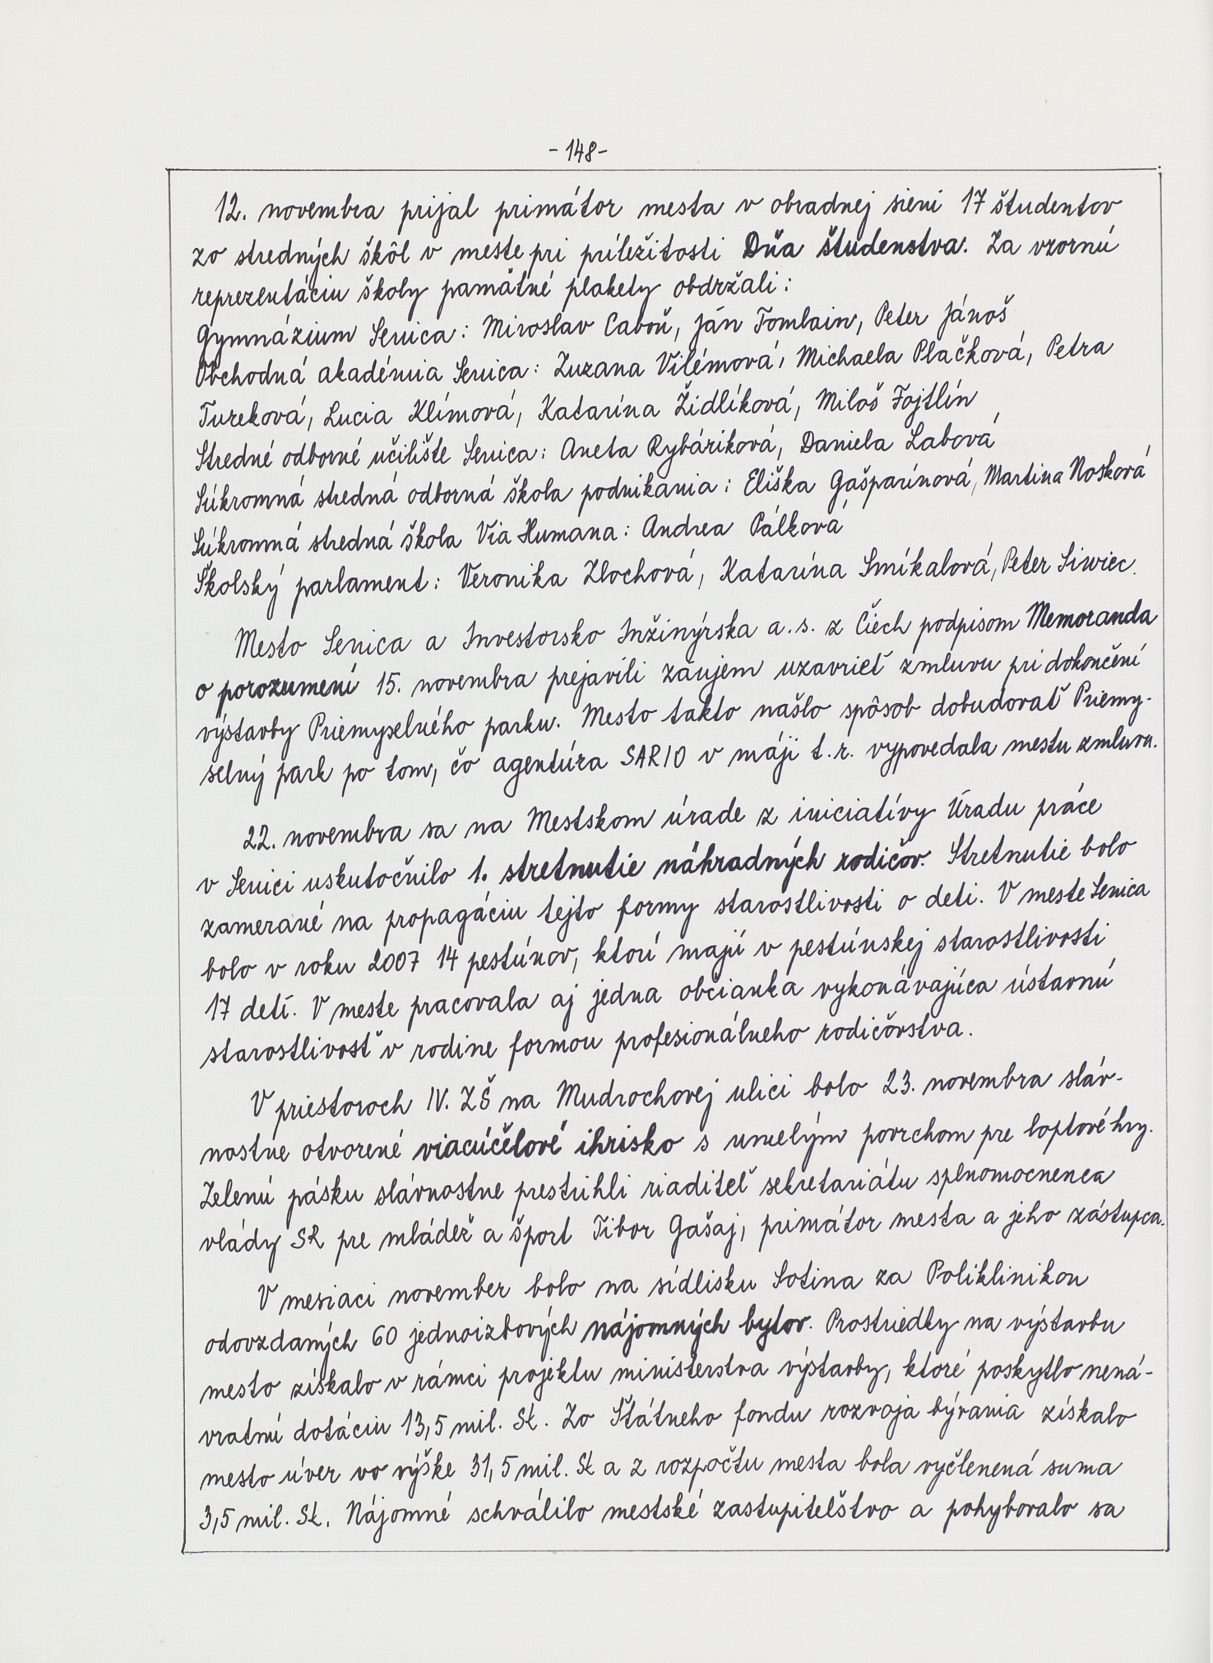 - 148 -
12. novembra prijal primátor mesta v obradnej sieni 17 študentov
zo stredných škôl v meste pri príležitosti Dňa študenstva. Za vzornú
reprezentáciu školy pamätné plakety obdržali:
Gymnázium Senica: Miroslav Caboň, Ján Tomlain, Peter Jánoš
Obchodná akadémia Senica: Zuzana Vilémová, Michaela Plačková, Petra
Tureková, Lucia Klímová, Katarína Židlíková, Miloš Fojtlín
Stredné odborné učilište Senica: Aneta Rybáriková, Daniela Labová
Súkromná stredná odborná škola podnikania: Eliška Gašparínová, Martina Nosková
Súkromná stredná škola Via Humana: Andrea Pálková
Školský parlament: Veronika Zlochová, Katarína Smíkalová, Peter Siwiec.
Mesto Senica a Investorsko Inžinýrska a.s. z Čiech podpisom Memoranda
o porozumení 15. novembra prejavili záujem uzavrieť zmluvu pri dokončení
výstavby Priemyselného parku. Mesto takto našlo spôsob dobudovať Priemy-
selný park po tom, čo agentúra SARIO v máji t.r. vypovedala mestu zmluvu.
22. novembra sa na Mestskom úrade z iniciatívy Úradu práce
v Senici uskutočnilo 1. stretnutie náhradných rodičov. Stretnutie bolo
zamerané na propagáciu tejto formy starostlivosti o deti. V meste Senica
bolo v roku 2007 14 pestúnov, ktorí majú v pestúnskej starostlivosti
17 detí. V meste pracovala aj jedna občianka vykonávajúca ústavnú
starostlivosť v rodine formou profesionálneho rodičovstva.
V priestoroch IV. ZŠ na Mudrochovej ulici bolo 23. novembra sláv-
nostne otvorené viacúčelové ihrisko s umelým povrchom pre loptové hry.
Zelenú pásku slávnostne prestrihli riaditeľ sekretariátu splnomocnenca
vlády SR pre mládež a šport Tibor Gašaj, primátor mesta a jeho zástupca.
V mesiaci november bolo na sídlisku Sotina za Poliklinikou
odovzdaných 60 jednoizbových nájomných bytov. Prostriedky na výstavbu
mesto získalo v rámci projektu ministerstva výstavby, ktoré poskytlo nená-
vratnú dotáciu 13,5 mil. Sk. Zo Štátneho fondu rozvoja bývania získalo
mesto úver vo výške 31,5 mil. Sk a z rozpočtu mesta bola vyčlenená suma
3,5 mil. Sk. Nájomné schválilo mestské zastupiteľstvo a pohybovalo sa